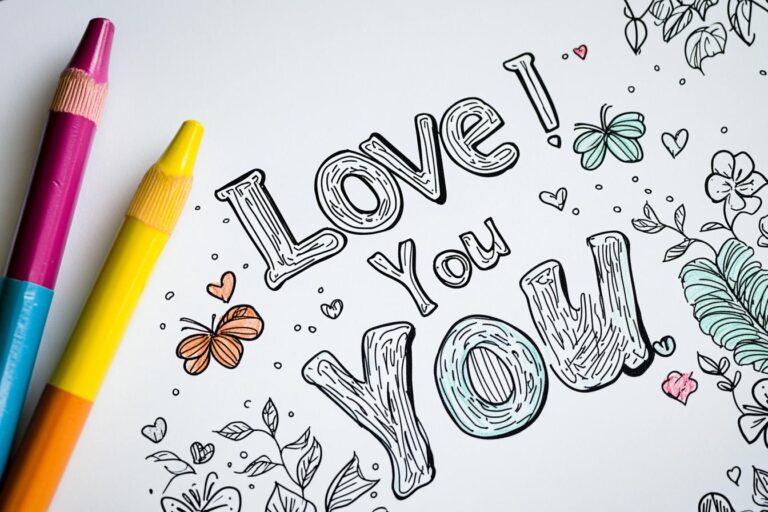 Love!
You
You